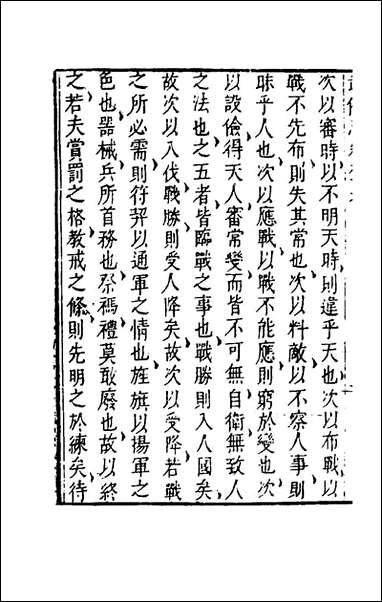 次以審時以不明天時則違乎天也次以布戰以
戰不先布則失其常也次以料敵以不察人事則
昧乎人也次以應戰以戰不能應則窮於變也次
以設險得天人審常變而皆不可無自衛無致人
之法也之五者皆臨戰之事也戰勝則入人國矣
故次以入伐戰勝則受人降矣故次以受降若戰
之所必需則符契以通軍之情也旌旗以揚軍之
色也器械兵所首務也祭禡禮莫敢廢也故以終
之若夫賞罰之格教戒之條則先明之於練矣待